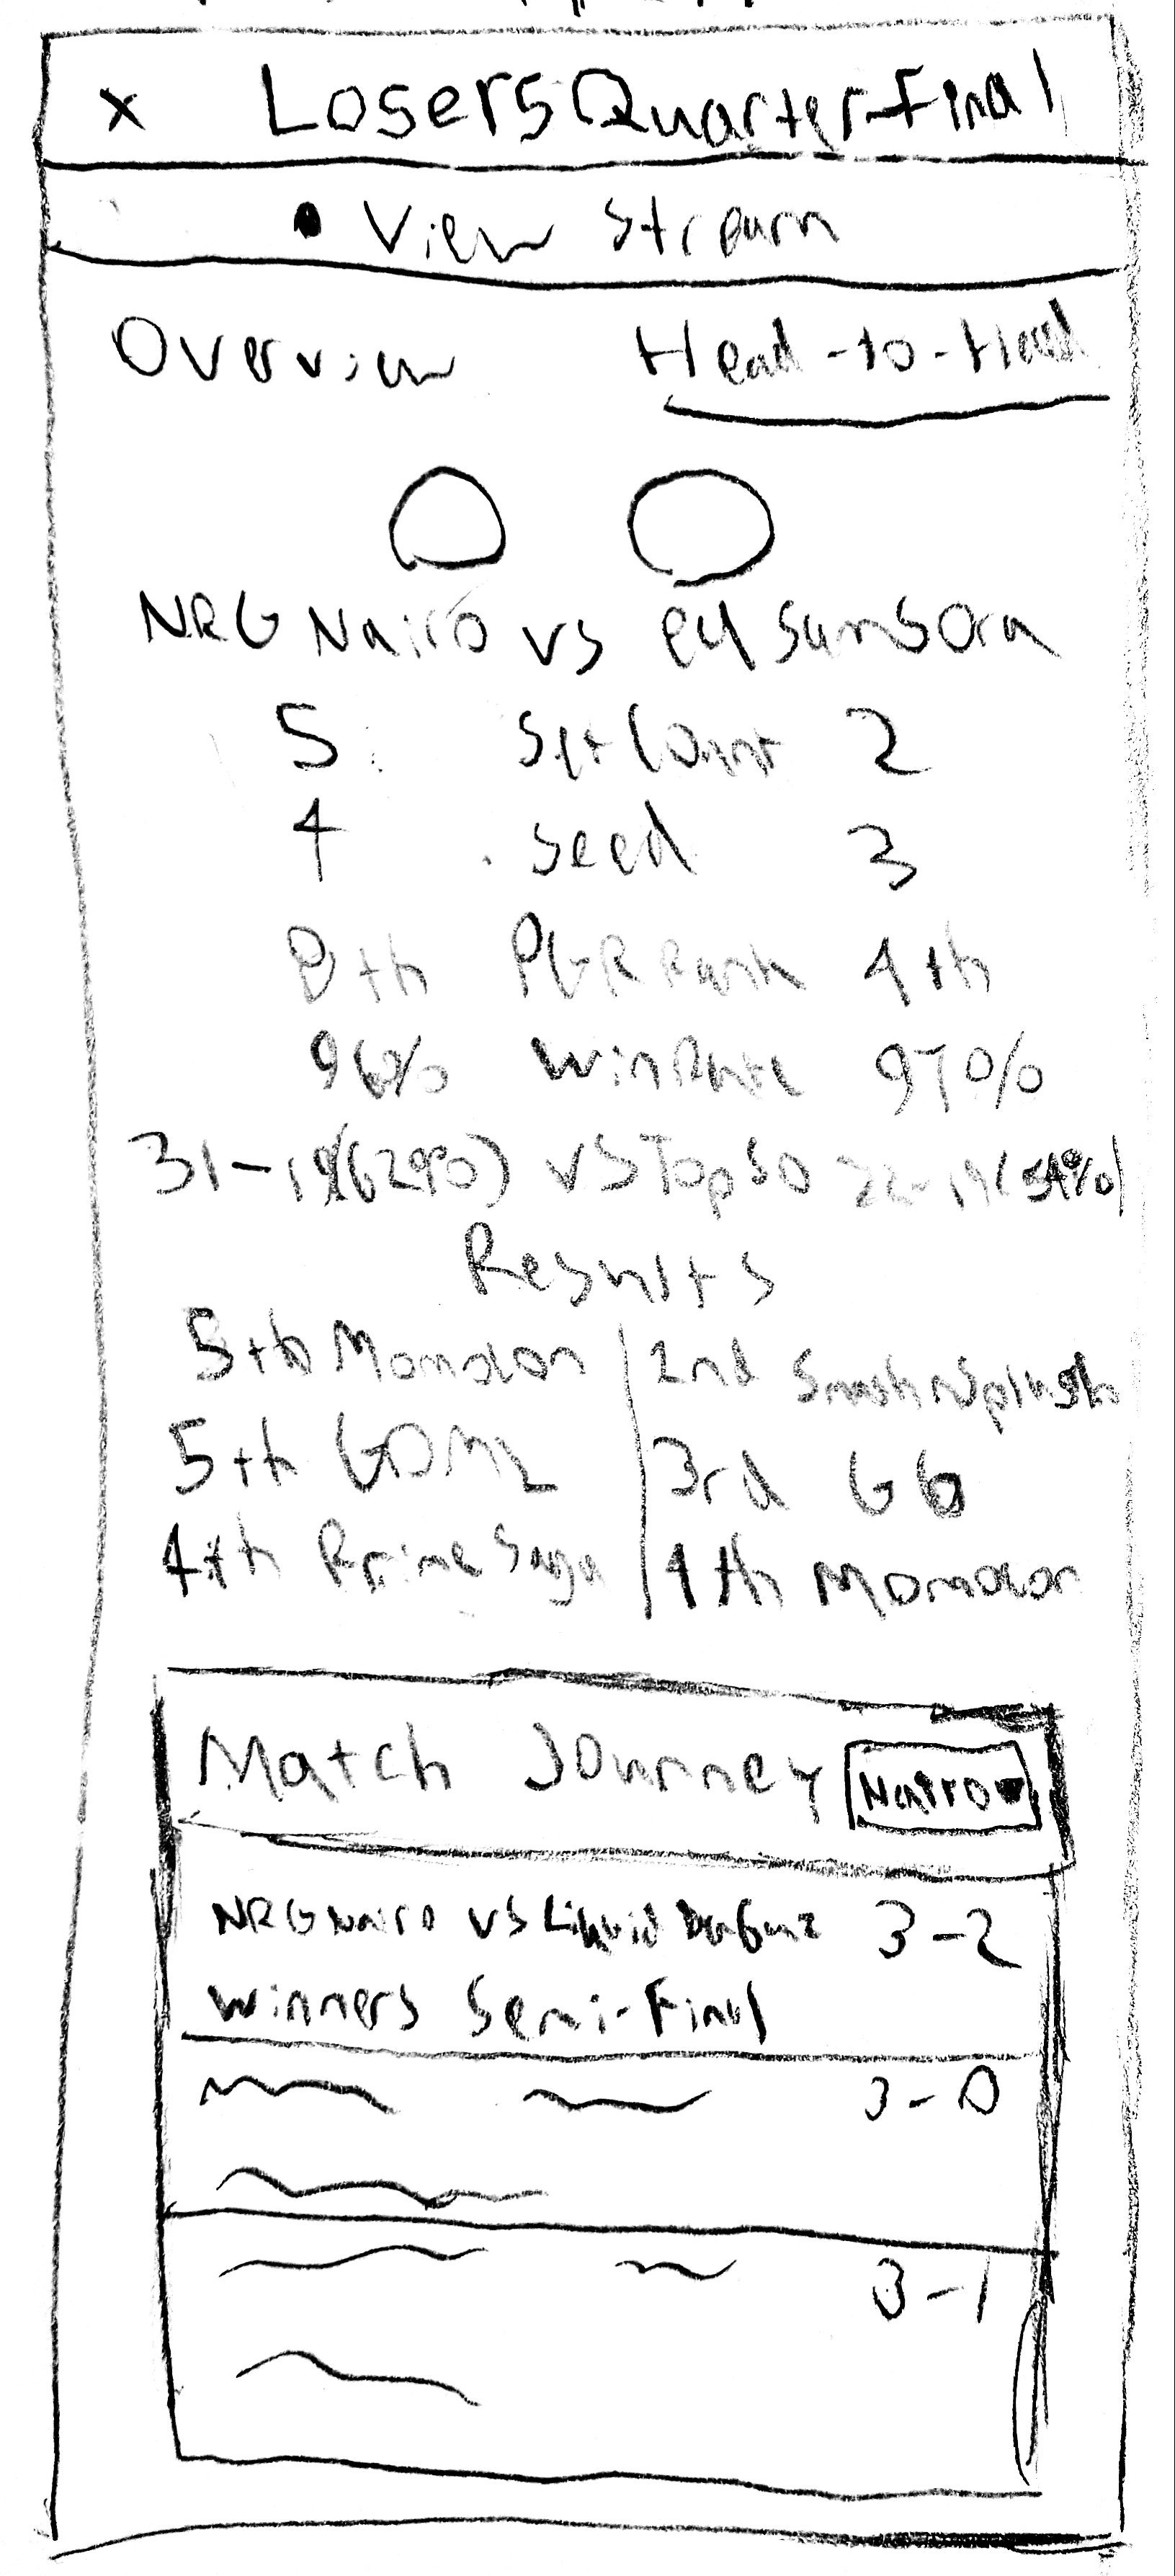 x Losers Quarter-Final
• View Stream
Overview Head-to-Head
NRG Nairo vs eU Samsora
5 Set Count 2
4 Seed 3
8th PGR Rank 4th
96% WinRate 97%
31-19(62%) VS Top 50 22-19(54%)
Results
5th Momocon | 2nd Smash n Splash
5th GOML | 3rd G6
4th Prime Saga | 4th Momocon
Match Journey Nairo
NRG Nairo vs Liquid Dabuz 3-2
Winners Semi-Final
3-0
3-1